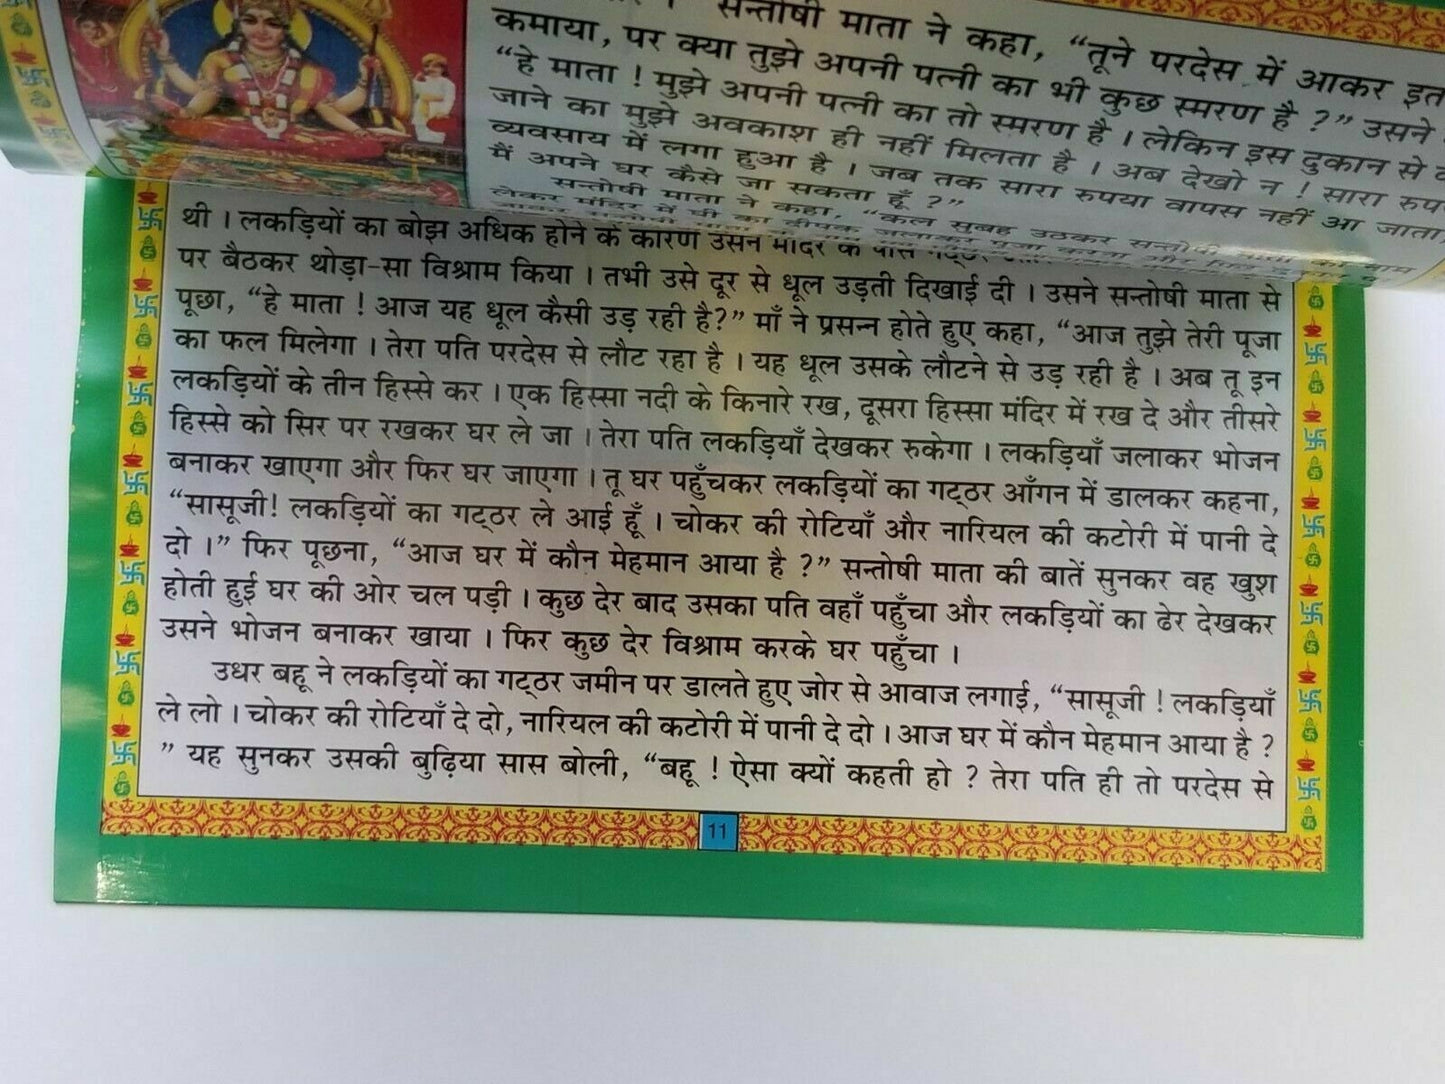 सन्तोषी माता ने कहा, “तूने परदेस में आकर
कमाया, पर क्या तुझे अपनी पत्नी का भी कुछ स्मरण है ?” उसने
“हे माता ! मुझे अपनी पत्नी का तो स्मरण है । लेकिन इस दुकान से
जाने का मुझे अवकाश ही नहीं मिलता है । अब देखो न ! सारा
व्यवसाय में लगा हुआ है । जब तक सारा रुपया वापस नहीं आ जाता,
मैं अपने घर कैसे जा सकता हूँ ?”
सन्तोषी माता ने कहा, “कल सुबह उठकर सन्तोषी माता का नाम
लेकर मंदिर में घी का दीपक जलाकर
थी । लकड़ियों का बोझ अधिक होने के कारण उसने मंदिर के पास
पर बैठकर थोड़ा-सा विश्राम किया । तभी उसे दूर से धूल उड़ती दिखाई दी । उसने सन्तोषी माता से
पूछा, “हे माता ! आज यह धूल कैसी उड़ रही है?” माँ ने प्रसन्न होते हुए कहा, “आज तुझे तेरी पूजा
का फल मिलेगा । तेरा पति परदेस से लौट रहा है । यह धूल उसके लौटने से उड़ रही है । अब तू इन
लकड़ियों के तीन हिस्से कर । एक हिस्सा नदी के किनारे रख, दूसरा हिस्सा मंदिर में रख दे और तीसरे
हिस्से को सिर पर रखकर घर ले जा । तेरा पति लकड़ियाँ देखकर रुकेगा । लकड़ियाँ जलाकर भोजन
बनाकर खाएगा और फिर घर जाएगा । तू घर पहुँचकर लकड़ियों का गट्ठर आँगन में डालकर कहना,
“सासूजी! लकड़ियों का गट्ठर ले आई हूँ । चोकर की रोटियाँ और नारियल की कटोरी में पानी दे
दो ।” फिर पूछना, “आज घर में कौन मेहमान आया है ?” सन्तोषी माता की बातें सुनकर वह खुश
होती हुई घर की ओर चल पड़ी । कुछ देर बाद उसका पति वहाँ पहुँचा और लकड़ियों का ढेर देखकर
उसने भोजन बनाकर खाया । फिर कुछ देर विश्राम करके घर पहुँचा ।
उधर बहू ने लकड़ियों का गट्ठर जमीन पर डालते हुए जोर से आवाज लगाई, “सासूजी ! लकड़ियाँ
ले लो । चोकर की रोटियाँ दे दो, नारियल की कटोरी में पानी दे दो । आज घर में कौन मेहमान आया है ?
” यह सुनकर उसकी बुढ़िया सास बोली, “बहू ! ऐसा क्यों कहती हो ? तेरा पति ही तो परदेस से
11